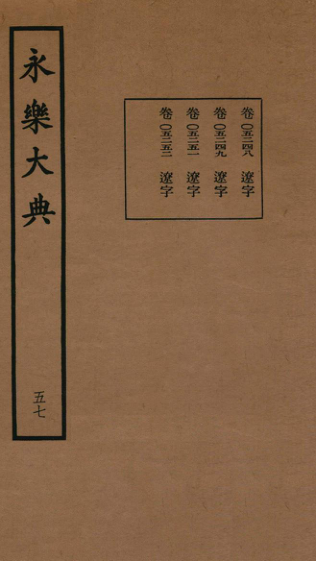 永樂大典
五七
卷〇五二四八 遼字
卷〇五二四九 遼字
卷〇五二五一 遼字
卷〇五二五二 遼字